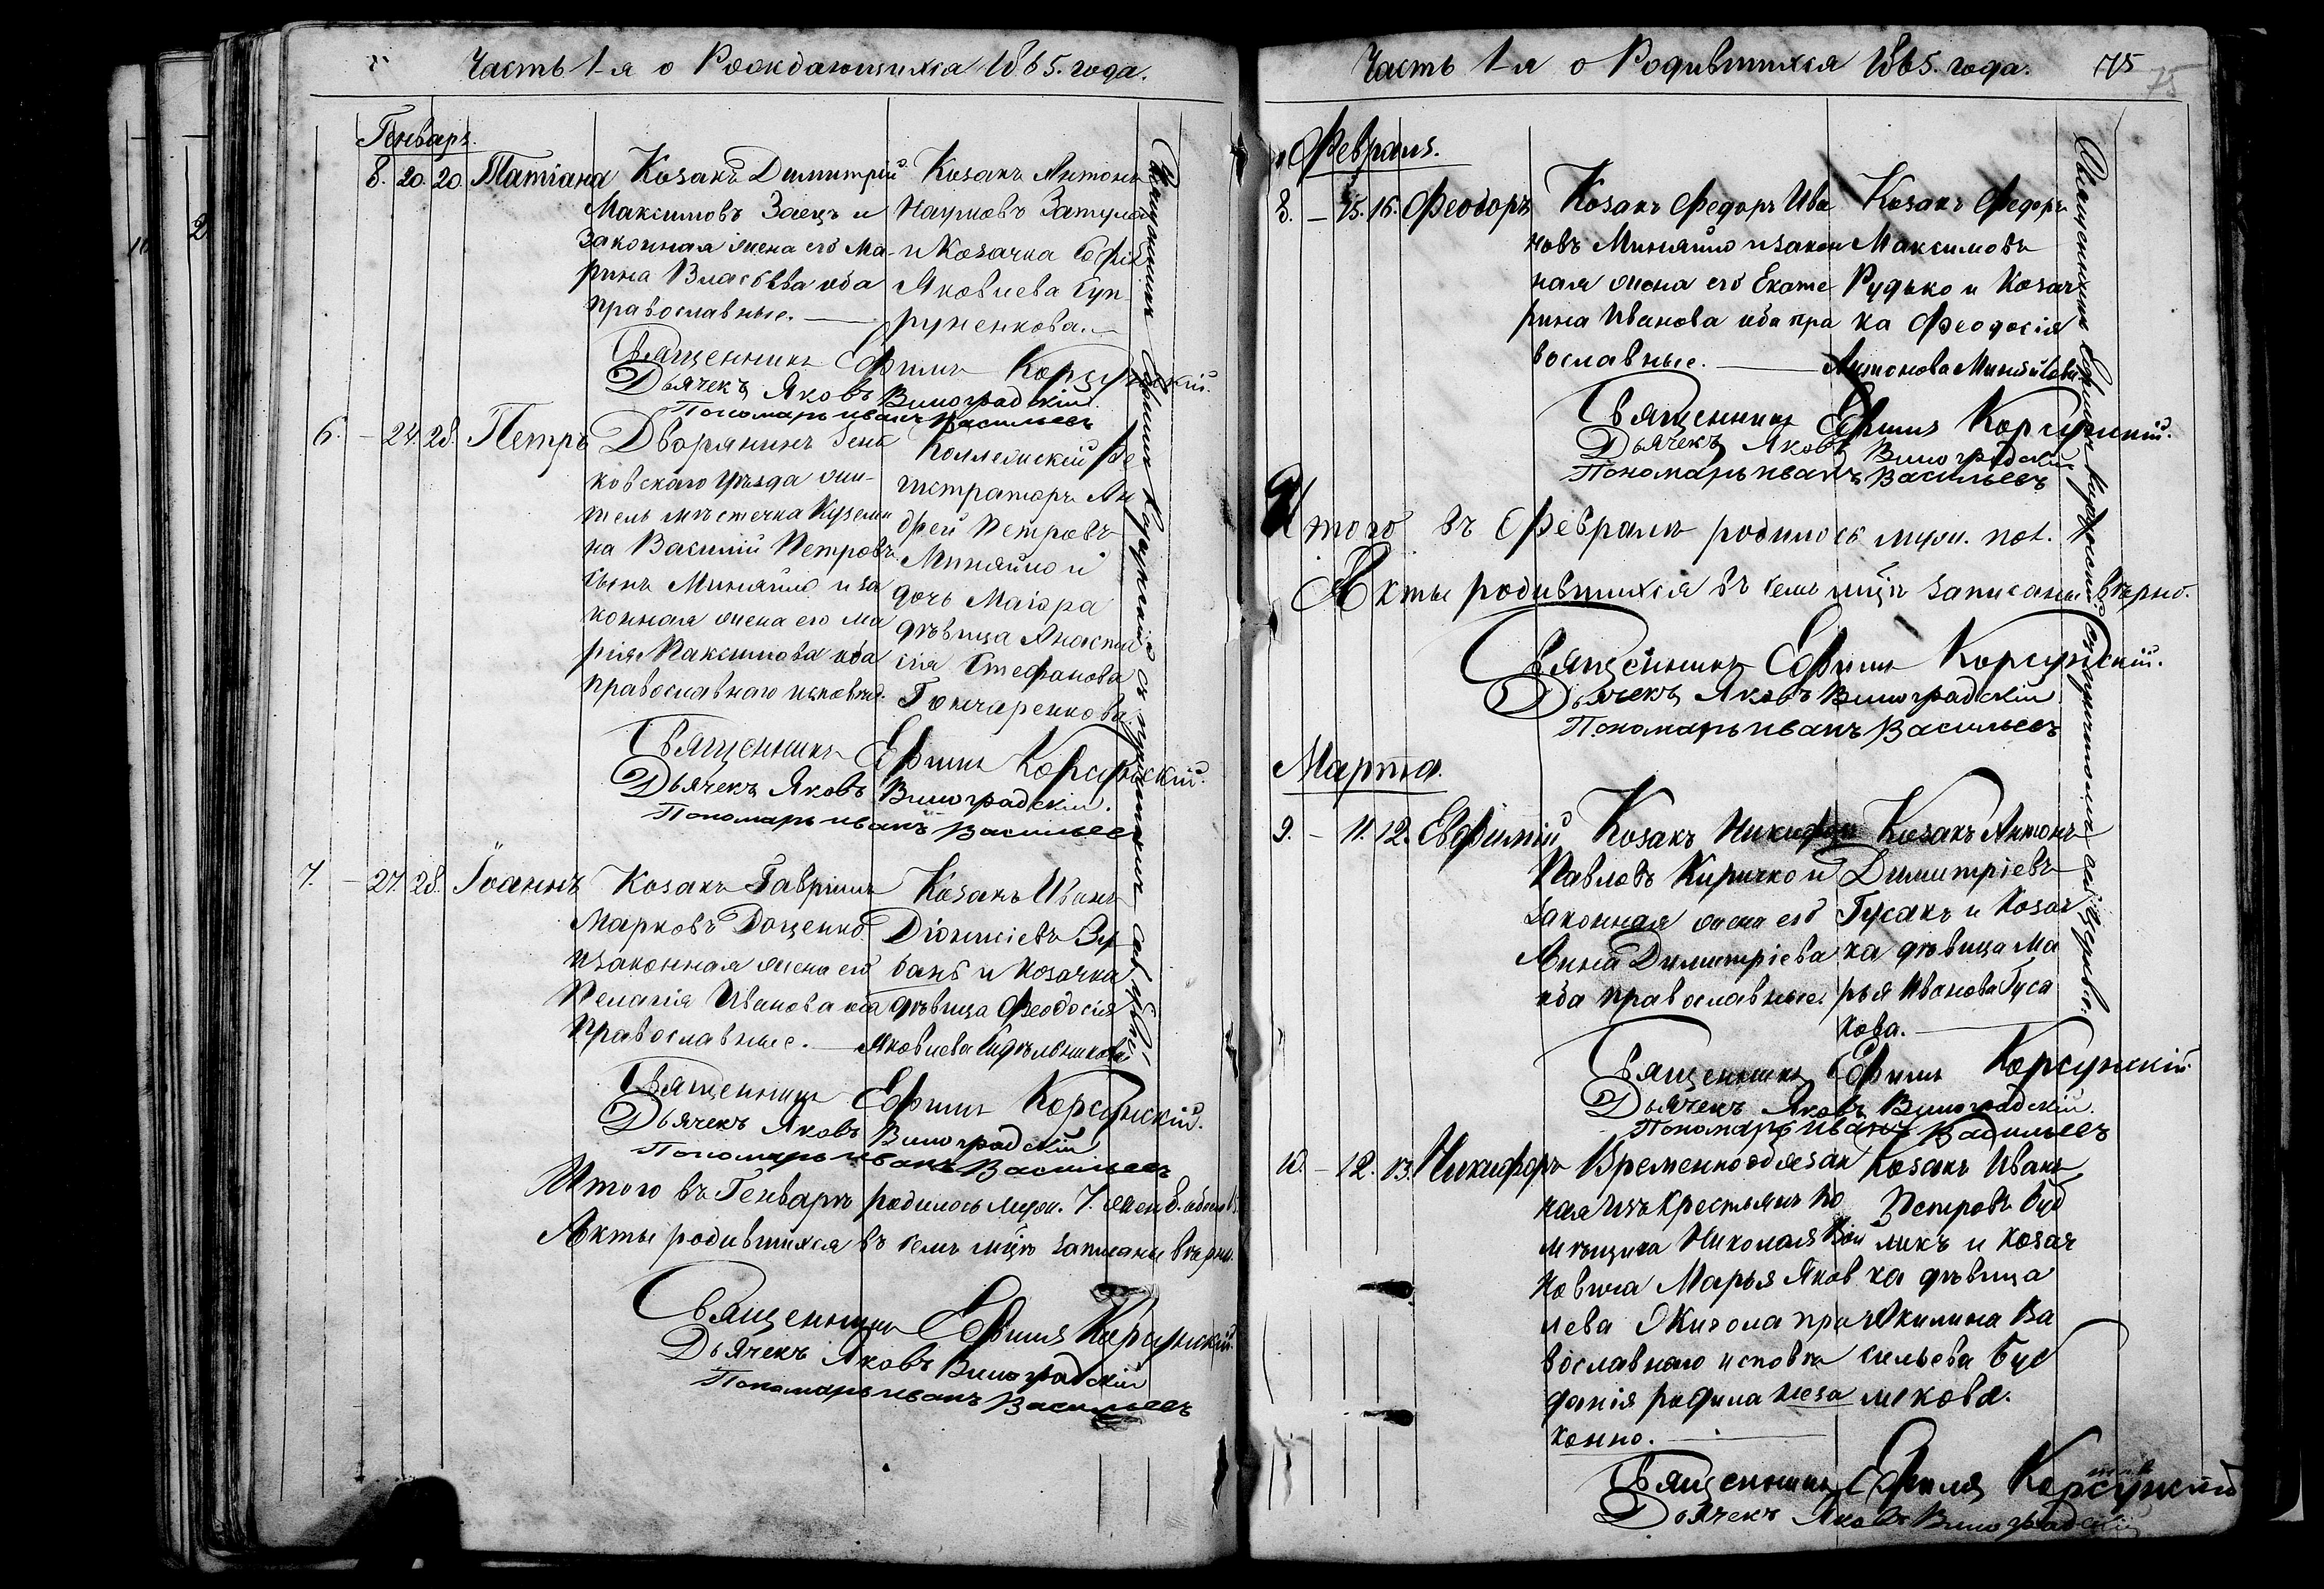 Часть 1-я о Рождающихся 1865. года.
Генварь.
8. 20. 20. Татіана
Козакъ Димитрій
Максимовъ Заецъ и
законная жена его Ма-
рина Власова оба
православные.
Козакъ Антонъ
Наумовъ
и Козачка Софія
Яковлева Суп-
руненкова.
Священникъ Ефимъ Корсунскій.
Дьячекъ Яковъ Виноградскій
Пономарь Иванъ Васильевъ
6. – 24. 28. Петръ
Дворянинъ Зень
ковскаго уѣзда жи-
тель мѣстечка Куземи
на Василій Петровъ
сынъ Миняйло и за
конная жена его Ма
рія Максимова оба
православнаго исповѣд.
Коллежскій Ре
гистраторъ Ан
дрей Петровъ
Миняйло и
дочь Маіора
дѣвица Анаста
сія Стефанова
Гончаренкова
Священникъ Ефимъ Корсунскій.
Дьячекъ Яковъ Виноградскій.
Пономарь Иванъ Васильевъ
7. – 27. 28. Іоаннъ
Козакъ Гавріилъ
Марковъ Доценко
и законная жена его
Пелагія Иванова оба
православные.
Козакъ Иванъ
Діонисіевъ Зу
бань и Козачка
дѣвица Феодосія
Яковлева
Священникъ Ефимъ Корсунскій.
Дьячекъ Яковъ Виноградскій
Пономарь Иванъ Васильевъ
Итого въ Генварѣ родилось муж. 7. жен. 8. обоего
Акты родившихся въ семъ мцѣ записаны вѣрно.
Священникъ Ефимъ Корсунскій.
Дьячекъ Яковъ Виноградскій
Пономарь Иванъ Васильевъ
Священникъ Ефимъ Корсунскій съ причтомъ
Часть 1-я о Родившихся 1865. года. 175
75
Февраль.
8. – 15. 16. Феодоръ
Козакъ Федоръ Ива
новъ Миняйло и закон
ная жена его Екате
рина Иванова оба пра
вославные.
Козакъ Федоръ
Максимовъ
Рудько и Козач
ка Феодосія
Антонова
Священникъ Ефимъ Корсунскій.
Дьячекъ Яковъ Виноградскій
Пономарь Иванъ Васильевъ
Итого въ Февралѣ родилось муж. пол.
Акты родившихся въ семъ мцѣ записаны вѣрно.
Священникъ Ефимъ Корсунскій.
Дьячекъ Яковъ Виноградскій
Пономарь Иванъ Васильевъ
Марта.
9. – 11. 12. Евфимій
Козакъ Никифоръ
Павловъ Киричко и
законная жена его
Анна Димитріева
оба православные.
Козакъ Антонъ
Димитріевъ
Гусакъ и Козач
ка дѣвица Ма
рья Иванова Гуса
кова.
Священникъ Ефимъ Корсунскій
Дьячекъ Яковъ Виноградскій.
Пономарь Иванъ Васильевъ
10. – 12. 13. Никифоръ
Временнообязан
ная изъ крестьянъ по
мѣщика Николая
Марья Яков
лева пра
вославнаго исповѣ
данія родила неза
конно.
Козакъ Иванъ
Петровъ Буд
никъ и Козач
ка дѣвица
Акилина Ва
сильева Буд
никова.
Священникъ Ефимъ Корсунскій
Дьячекъ Яковъ Виноградскій
Священникъ Ефимъ Корсунскій съ причтомъ